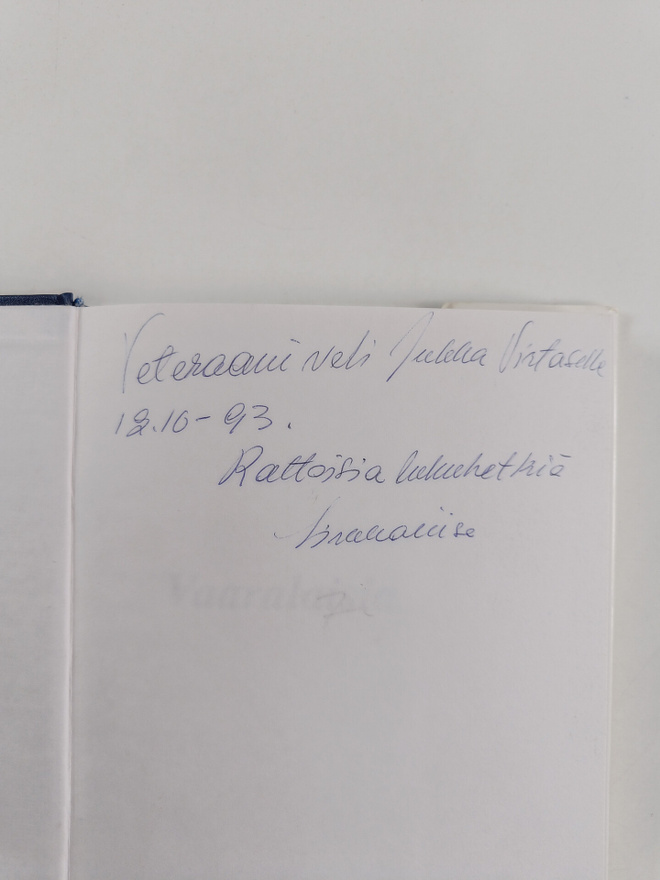 Veteraani veli Jukka Virtaselle
12.10-93.
Rattoisia lukuhetkiä